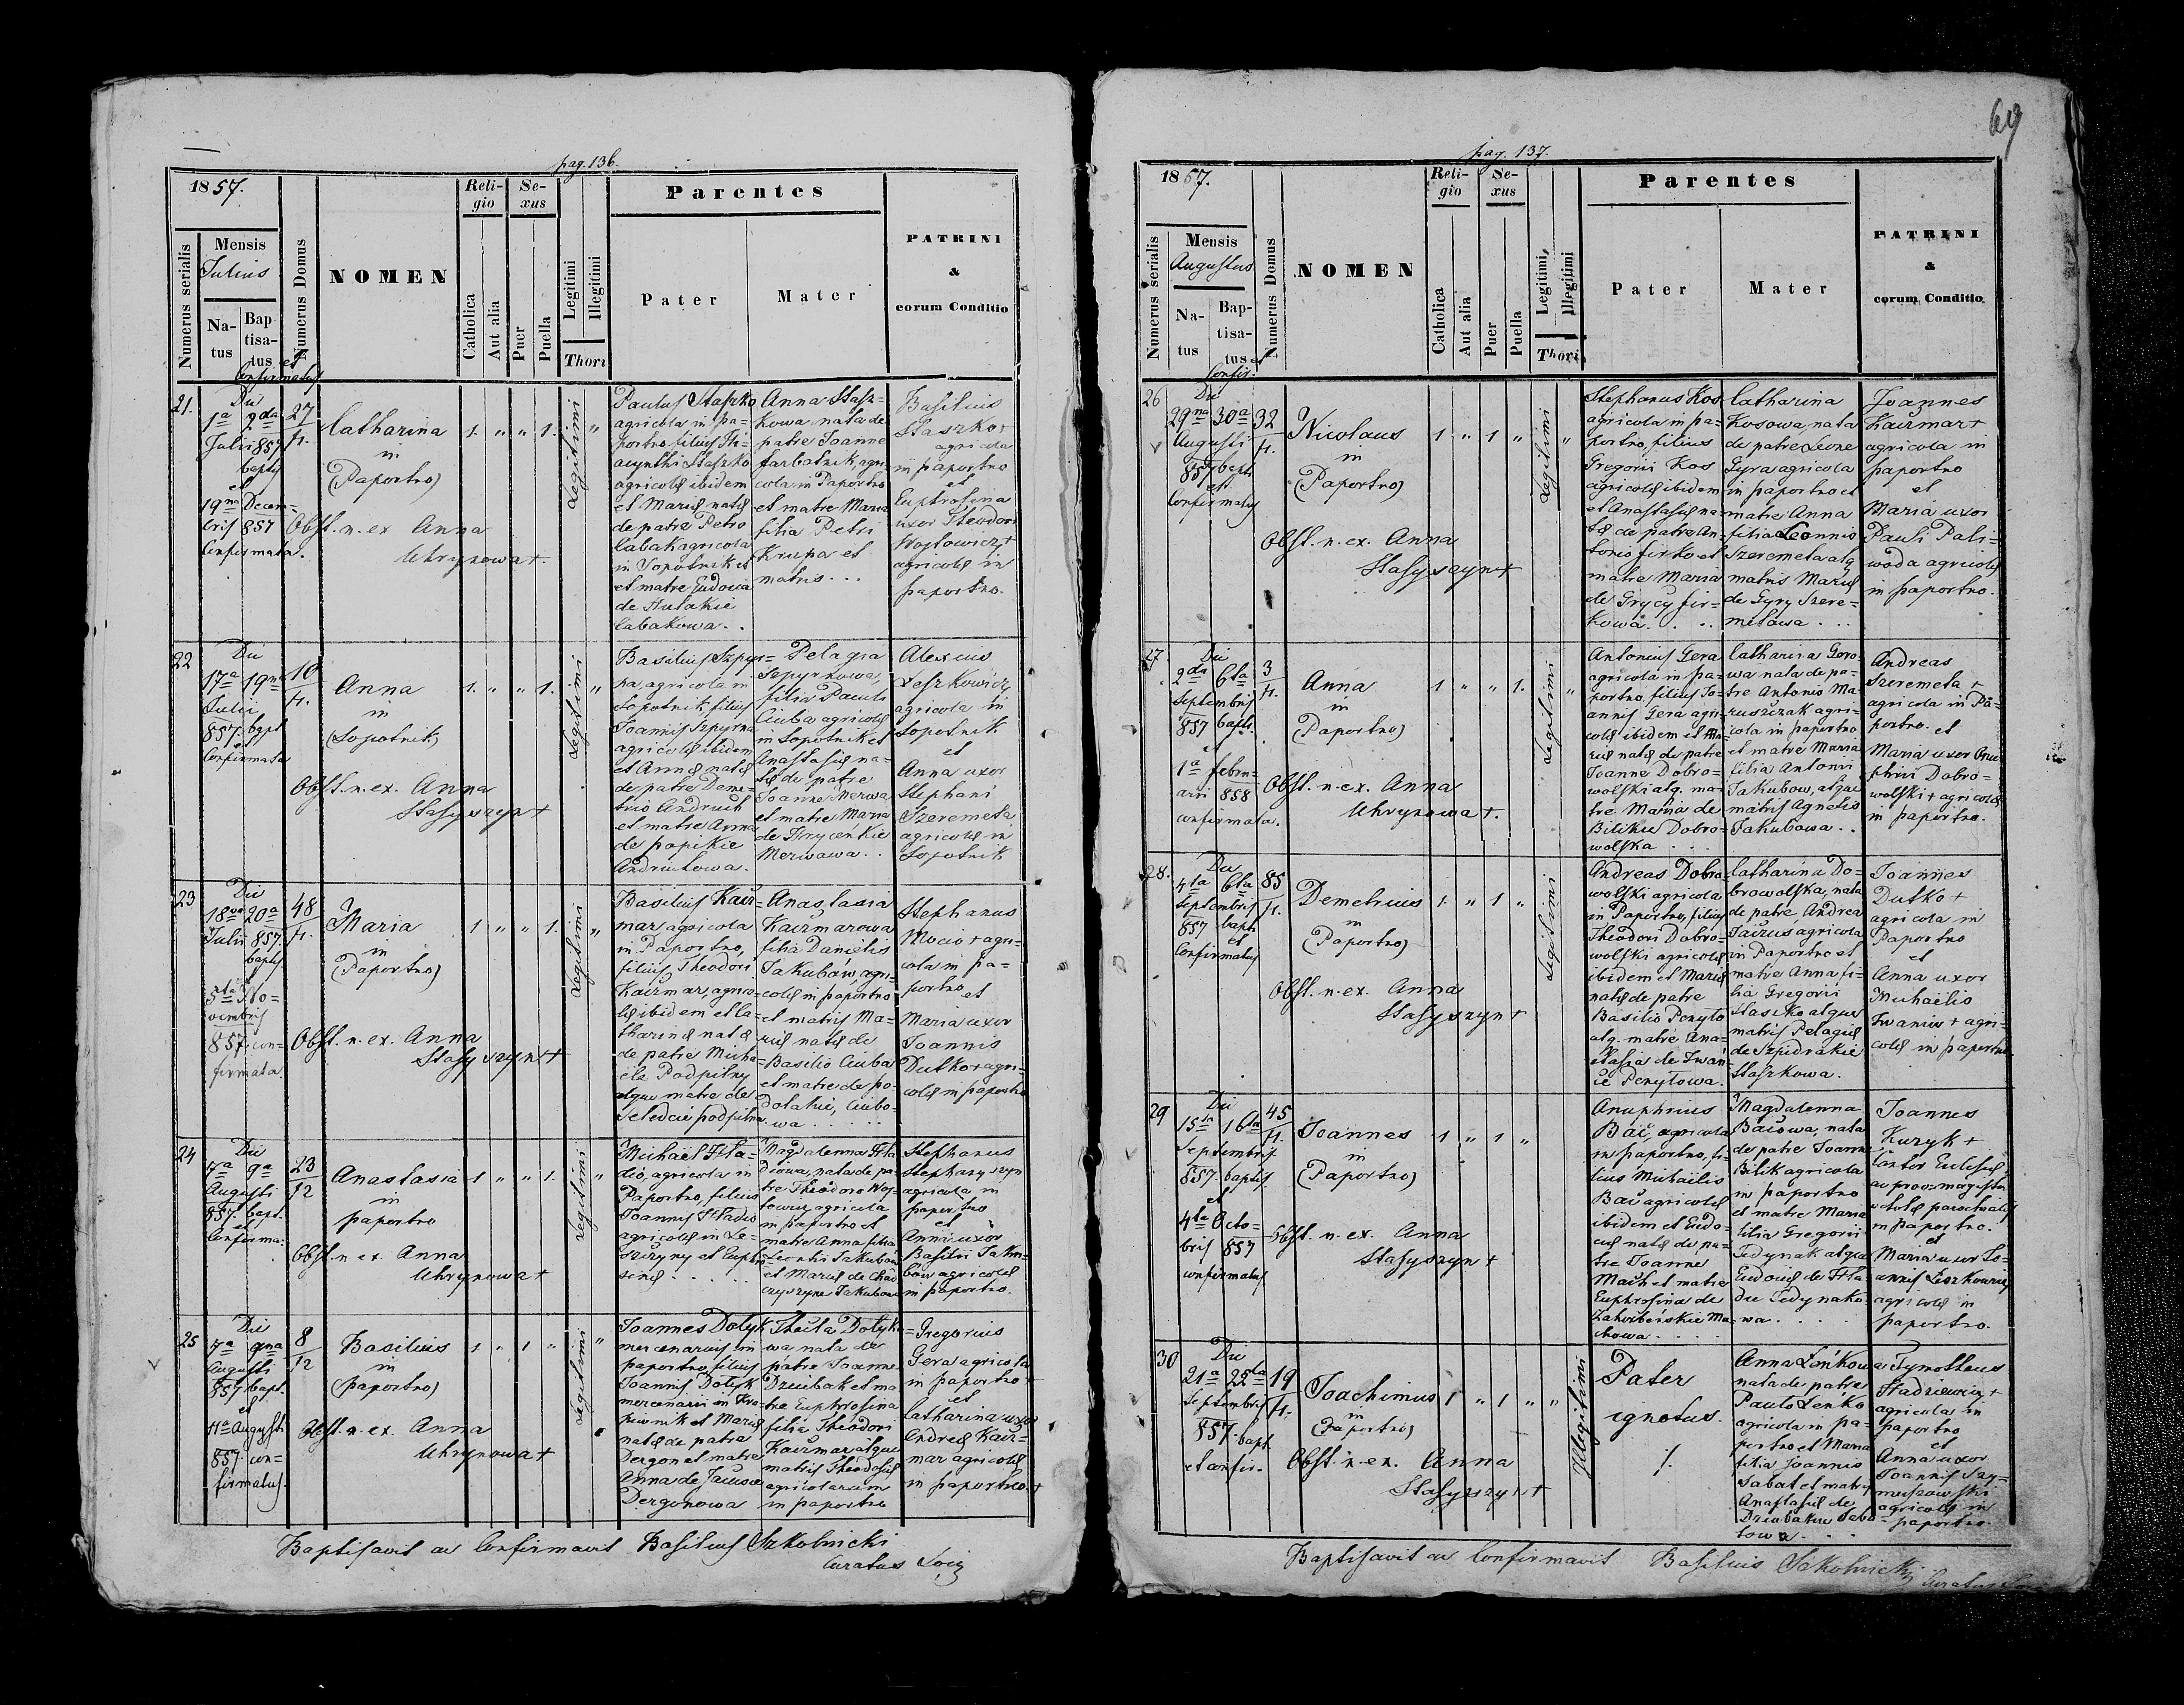 69
pag. 136.
1857.
Numerus serialis
Mensis
Julius
Na-
tus
Bap
tisa-
tus et
Confirmatus
Numerus Domus
NOMEN
Reli-
gio
Catholica
Aut alia
Se-
xus
Puer
Puella
Legitimi
Illegitimi
Thori
Parentes
Pater
Mater
PATRINI
&
eorum Conditio
21.
Die
1a 2da
Julii 857
bapts
et
19na Decem-
bris 857
Confirmata.
27
Catharina
in
(Paportno)
Obst. n. ex Anna
Uhrynowa +
1. " " 1.
Legitimi
"
Paulus Staszko
agricola in Pa-
portno filius Hi-
acynthi Staszko
agricolę ibidem
et Marię natę
de patre Petro
Cabak agricola
in Sopotnik et
et matre Eudocia
de
Cabakowa . .
Anna Stasz-
kowa, nata de
patre Joanne
Harbatnik, agri-
cola in Paportno
et matre Maria
filia Petri
Krupa et
matris . . .
Basilius
Staszko +
agricola
in paportno
et
Euphrosina
uxor Theodori
Woytowicz +
agricolę in
paportno.
22
Die
17a 19na
Julii
857. bapt
Confirmata
10
Anna
in
(Sopotnik)
Obst. n. ex. Anna
Stasyszyn +
1. " " 1.
Legitimi
"
Basilius Szpyr-
ka, agricola in
Sopotnik, filius
Joannis Szpyrka
agricolę ibidem
et Annę natę
de patre Deme-
trio Andruch
et matre Anna
de papikie
Andruchowa.
Pelagia
Szpyrkowa,
filia Pauli
Ciuba agricolę
in Sopotnik et
Anastasię na-
tę de patre
Joanne Merwa
et matre Maria
de Hrycenkie
Merwowa . .
Alexius
Leszkowicz
agricola in
Sopotnik
et
Anna uxor
Stephani
Szeremeta
agricolę in
Sopotnik
23
Die
18va 20a
Julii 857.
bapts.
5ta No-
vembris
857. con-
firmata
48
Maria
in
(Paportno)
Obst. n. ex. Anna
Stasyszyn +
1 " " 1.
Legitimi
"
Basilius Kacz-
mar, agricola
in Paportno,
filius Theodori
Kaczmar, agrico-
lę ibidem et Ca-
tharinę natę
de patre Micha-
ele Podpilny
atque matre de
Seledcie podpilna
Anastasia
Kaczmarowa
filia Danielis
Jakubów, agri-
colę in paportno
et matris Ma-
rię natę de
Basilio Ciuba
et matre de po-
dolakie, Ciubo-
wa . . . . .
Stephanus
Mocio + agri-
cola in pa-
portno
et
Maria uxor
Joannis
Dutko + agri-
colę in paportno
24
Die
7a 9a
Augusti
857 bapt.
et
Confirma:
23
12
Anastasia
in
paportno
Obst. n ex. Anna
Uhrynowa +
1 " " 1.
Legitimi
"
Michael Hła-
dio, agricola in
Paportno, filius
Joannis Hładio
agricolę in Le-
szczyny et Euphro-
sinę . . . . .
Magdalenna Hła
diowa, nata de pa-
tre Theodoro Woy-
towicz, agricola
in paportno et
matre Anna filia
Leontii Jakubow
et Marię de
Jakubow
Stephanus
Stephaszyn
agricola in
paportno
et
Anna uxor
Basilii Jaku-
bow agricolę
in paportno.
25
Die
7a 9na
Augusti
857 bapt.
et
11a Augusti
857. con-
firmatus.
8
12
Basilius
in
(paportno)
Obst. n. ex. Anna
Uhrynowa +
1 " 1 "
Legitimi
"
Joannes Dotyk
mercenarius in
paportno, filius
Joannis Dotyk
mercenarii in
et Marię
natę de patre
Dergon et matre
Anna de
Dergonowa
Thecla Dotyko-
wa nata de
patre Joanne
Dziubak et ma-
tre Euphrosina
filia Theodori
Kaczmar atque
matris Theodosię
agricolarum
in paportno
Gregorius
Gera agricola
in paportno +
et
Catharina uxor
Andreę Kacz-
mar agricolę
in paportno. +
Baptisavit ac Confirmavit Basilius Szkolnicki
Curatus Loci
pag. 137.
1857.
Numerus serialis
Mensis
Augustus
Na-
tus
Bap-
tisa-
tus et
Confir.
Numerus Domus
NOMEN
Reli-
gio
Catholica
Aut alia
Se-
xus
Puer
Puella
Legitimi
Illegitimi
Thori
Parentes
Pater
Mater
PATRINI
&
eorum Conditio
26
Die
29na 30a
Augusti
857 bapts
et
Confirmatus
32
Nicolaus
in
(Paportno)
Obst. n. ex. Anna
Stasyszyn +
1 " 1 "
Legitimi
"
Stephanus Kos
agricola in pa-
portno, filius
Gregorii Kos
agricolę ibidem
et Anastasię na-
tę de patre An-
tonio Firko et
matre Maria
de Grycy fir-
kowa . . .
Catharina
Kosowa, nata
de patre Leone
Gyra agricola
in paportno et
matre Anna
filia Leonnis
Szeremeta atq
matris Marię
de Gyry Szere-
metowa . . .
Joannes
Kaczmar +
agricola in
paportno
et
Maria uxor
Pauli Pali-
woda agricolę
in paportno.
27.
Die
2da 6ta
Septembris
857 bapts.
et
1a Febru-
arii 858
confirmata.
3
Anna
in
(Paportno)
Obst. n. ex. Anna
Uhrynowa +.
1 " " 1.
Legitimi
"
Antonius Gera
agricola in pa-
portno, filius Jo-
annis Gera agri-
colę ibidem et Ma-
rię natę de patre
Joanne Dobro-
wolski atq. ma-
tre Maria de
Bilikie Dobro-
wolska . . .
Catharina Gero-
wa nata de pa-
tre Antonio Ma-
ruszczak agri-
cola in paportno
et matre Maria
filia Antonii
Jakubow, atque
matris Agnetis
Jakubowa . .
Andreas
Szeremeta +
agricola in Pa-
portno. et
Maria uxor Onu-
phrii Dobro-
wolski + agricolę
in paportno.
28.
Die
4ta 6ta
Septembris
857 bapts
et
Confirmatus
85
Demetrius
in
(Paportno)
Obst. n. ex. Anna
Stasyszyn +
1. " 1 "
Legitimi
Andreas Dobro-
wolski agricola
in Paportno, filius
Theodori Dobro-
wolski agricolę
ibidem et Marię
natę de patre
Basilio Penyło
atq. matre Ana-
stasia de Iwan-
cie Penyłowa.
Catharina Do-
browolska, nata
de patre Andrea
Jaćzus agricola
in Paportno et
matre Anna fi-
lia Gregorii
Staszko atque
matris Pelagię
de Szpidrakie
Staszkowa.
Joannes
Dutko +
agricola in
Paportno
et
Anna uxor
Michaëlis
Iwaniw + agri-
colę in paportno
29
Die
15ta 16ta
Septembris
857. baptis.
et
4ta Octo-
bris 857
confirmatus
45
Joannes
in
(Paportno)
Obst. n. ex. Anna
Stasyszyn +
1 " 1 "
Anuphrius
Bać, agricola
in paportno, fi-
lius Michaëlis
Bać agricolę
ibidem et Eudo-
cię natę de pa-
tre Joanne
Mach et matre
Euphrosina de
Ma-
chowa . . . .
Magdalenna
Baćowa, nata
de patre Joanne
Bilik agricola
in paportno
et matre Maria
filia Gregorii
Fedynak atque
Eudocię de Hła-
die Fedynako-
wa . . . .
Joannes
Kuzyk +
Cantor Ecclesię
ac magister
scholę parochialis
in paportno.
et
Maria uxor Jo-
annis Leszkowicz
agricolę in
paportno.
30
Die
21a 22da
Septembris
857. bapt.
et confir.
19
Joachimus
in
(Paportno)
Obst. n. ex. Anna
Stasyszyn +
1 " 1 " "
Illegitimi
Pater
ignotus.
./.
Anna Leńkow
nata de patre
Paulo Leńko
agricola in pa-
portno et Maria
filia Joannis
Sabat et matris
Anastasię de
Dziubakie Saba-
towa . . .
a Tymotheus
Hładziewicz +
agricola in
paportno
et
Anna uxor
Joannis Szy-
muszowski
agricolę in
paportno.
Baptisavit ac Confirmavit Basilius Szkolnicki Curatus